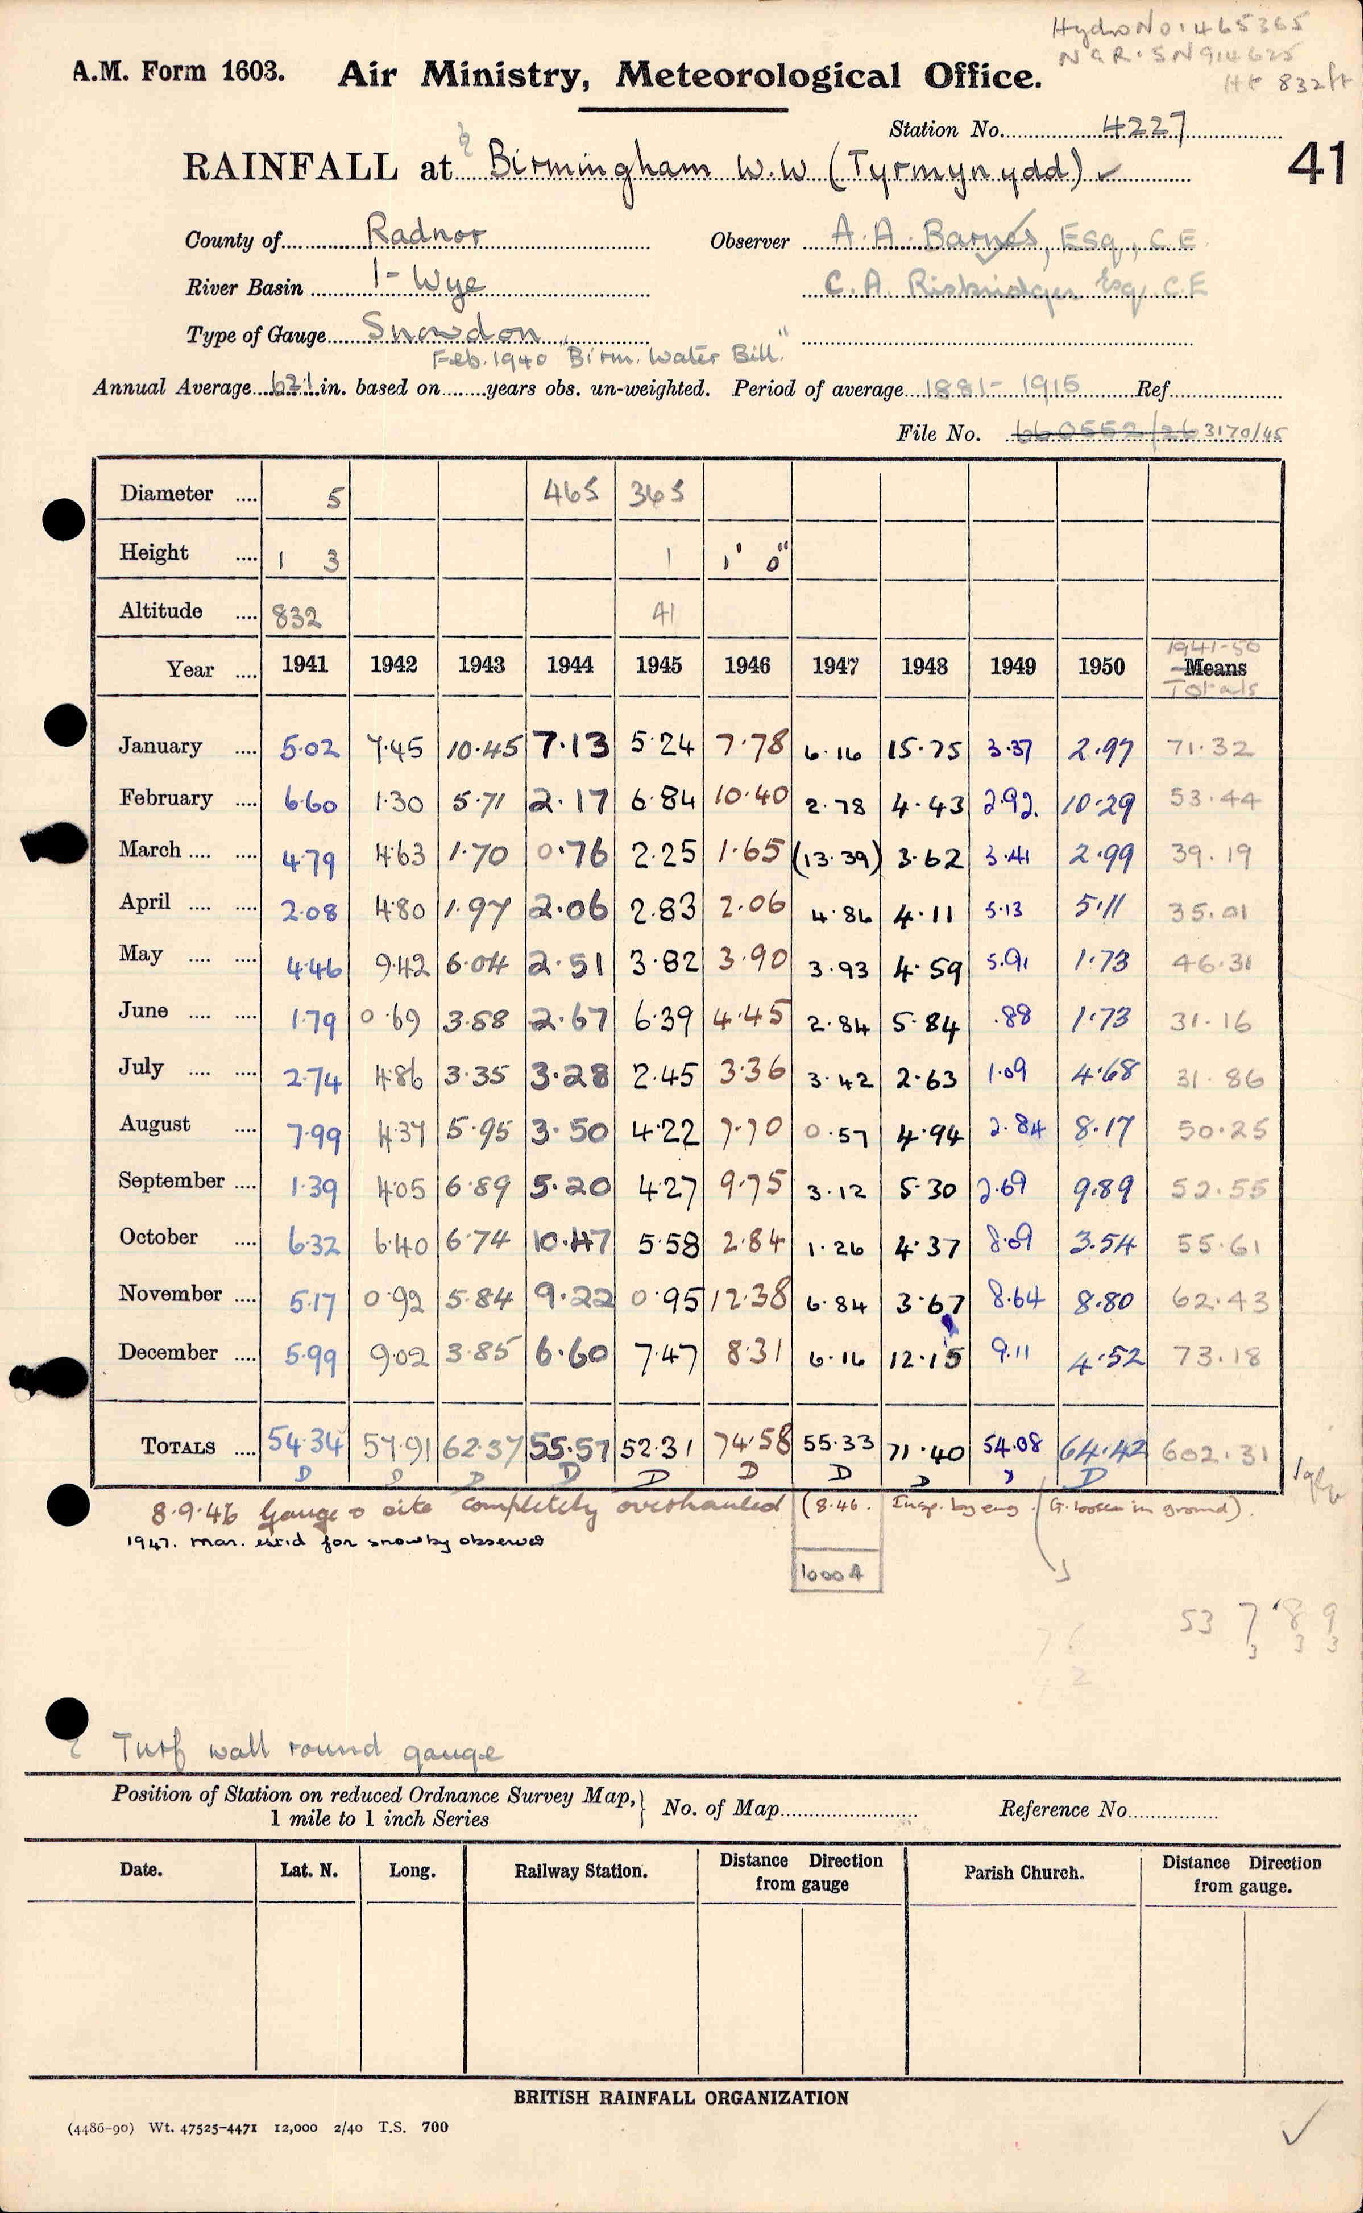 Hydro No. 465365
NGR. SN914625
Ht 832ft
A.M. Form 1603. Air Ministry, Meteorological Office.
Station No. 4227
RAINFALL at Birmingham W.W (Tyrmynydd) ✓ 41
County of Radnor Observer A. A. Barnes, Esq., C.E.
River Basin 1- Wye C. A. Risbridger Esq. C.E
Type of Gauge Snowdon
Feb. 1940 "Birm. Water Bill."
Annual Average 67.1 in. based on ........ years obs. un-weighted. Period of average 1881-1915 Ref.
File No. 660552/26 3170/45
Diameter .... 5 465 365
Height .... 1 3 1 1' 0"
Altitude .... 832 41
1941-50
Year .... 1941 1942 1943 1944 1945 1946 1947 1948 1949 1950 Means
Totals
January .... 5.02 7.45 10.45 7.13 5.24 7.78 6.16 15.75 3.37 2.97 71.32
February .... 6.60 1.30 5.71 2.17 6.84 10.40 2.78 4.43 2.92. 10.29 53.44
March .... .... 4.79 4.63 1.70 0.76 2.25 1.65 (13.39) 3.62 3.41 2.99 39.19
April .... .... 2.08 4.80 1.97 2.06 2.83 2.06 4.86 4.11 5.13 5.11 35.01
May .... .... 4.46 9.42 6.04 2.51 3.82 3.90 3.93 4.59 5.91 1.73 46.31
June .... .... 1.79 0.69 3.88 2.67 6.39 4.45 2.84 5.84 .88 1.73 31.16
July .... .... 2.74 4.86 3.35 3.28 2.45 3.36 3.42 2.63 1.09 4.68 31.86
August .... 7.99 4.37 5.95 3.50 4.22 7.70 0.57 4.94 2.84 8.17 50.25
September .... 1.39 4.05 6.89 5.20 4.27 9.75 3.12 5.30 2.69 9.89 52.55
October .... 6.32 6.40 6.74 10.47 5.58 2.84 1.26 4.37 8.09 3.54 55.61
November .... 5.17 0.92 5.84 9.22 0.95 12.38 6.84 3.67 8.64 8.80 62.43
December .... 5.99 9.02 3.85 6.60 7.47 8.31 6.16 12.15 9.11 4.52 73.18
TOTALS .... 54.34 57.91 62.37 55.57 52.31 74.58 55.33 71.40 54.08 64.42 602.31
D D D D D D D D D D
8.9.46 Gauge & site completely overhauled (8.46. Insp. by eng. (G. loose in ground).
1947. Mar. est'd for snow by observer
1000 A
53 7 8 9
3 3 3
Turf wall round gauge
Position of Station on reduced Ordnance Survey Map, } No. of Map Reference No.
1 mile to 1 inch Series
Date. Lat. N. Long. Railway Station. Distance Direction from gauge Parish Church. Distance Direction from gauge.
BRITISH RAINFALL ORGANIZATION
(4486-90) Wt. 47525-4471 12,000 2/40 T.S. 700